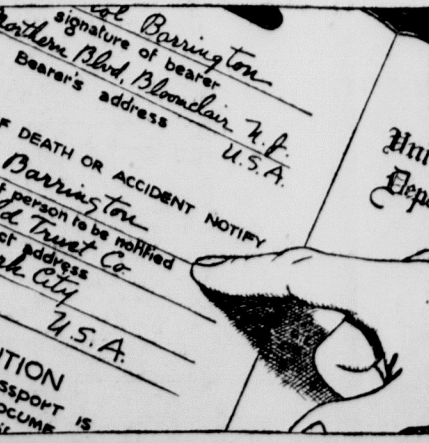 Barrington
signature of bearer
Northern Blvd, Bloomclair N.J.
Bearer's address
U.S.A.
F DEATH OR ACCIDENT NOTIFY
Barrington
person to be notified
d Trust Co
ct address
rk City
U.S.A.
TION
SSPORT IS
OCUME
Uni
Depa